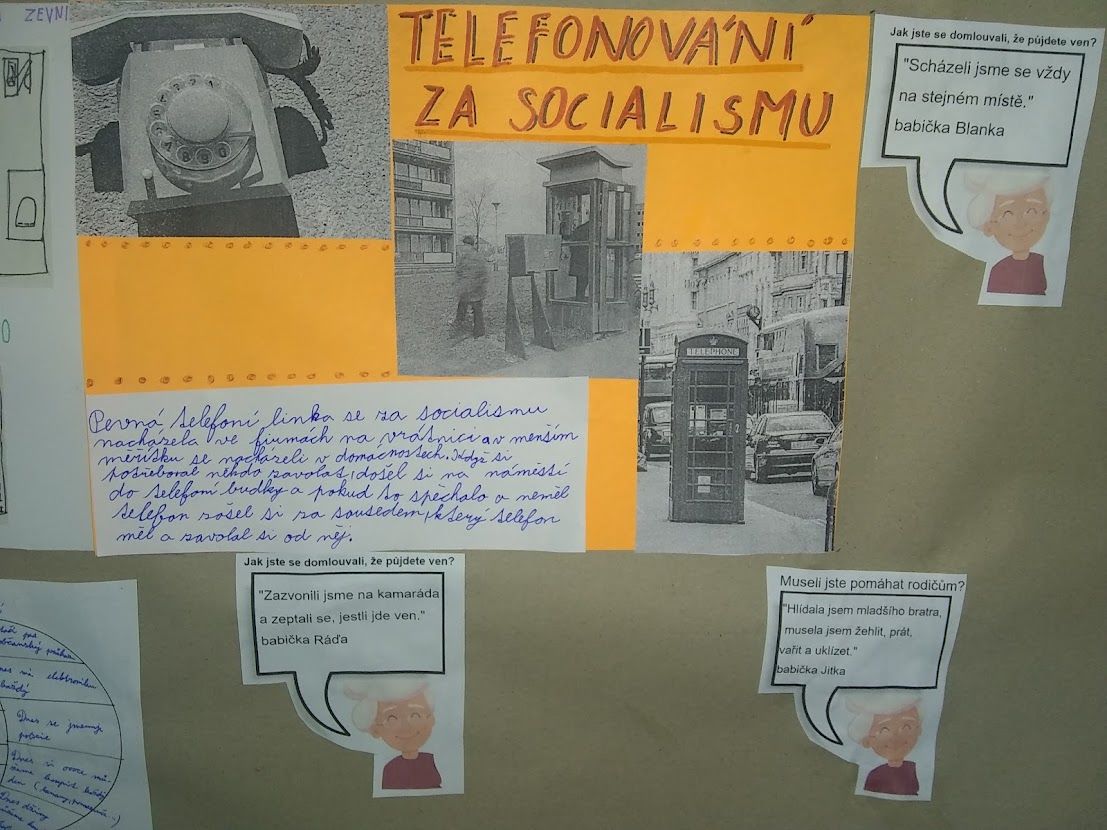 ZEVNI
TELEFONOVÁNÍ
ZA SOCIALISMU
TELEPHONE
Pevná telefoní linka se za socialismu
nacházela ve firmách na vrátnici a v menším
měřítku se nacházeli v domacnostech. Když si
potřeboval někdo zavolat, došel si na náměstí
do telefoní budky a pokud to spěchalo a neměl
telefon zašel si za sousedem, který telefon
měl a zavolal si od něj.
Jak jste se domlouvali, že půjdete ven?
"Scházeli jsme se vždy
na stejném místě."
babička Blanka
Jak jste se domlouvali, že půjdete ven?
"Zazvonili jsme na kamaráda
a zeptali se, jestli jde ven."
babička Ráďa
Museli jste pomáhat rodičům?
"Hlídala jsem mladšího bratra,
musela jsem žehlit, prát,
vařit a uklízet."
babička Jitka
občanský průkaz
elektronikou
každý
Dnes se jmenuje
policie
Dnes si ovoce mů-
žeme koupit každý
den (banany,
Dnes